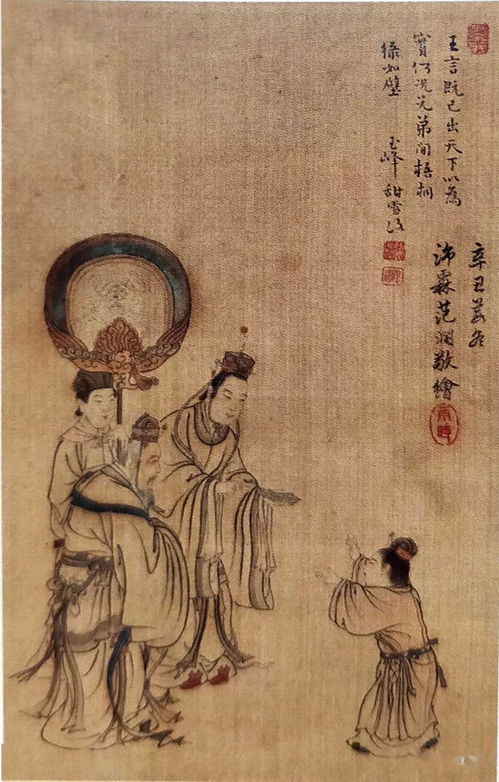 王言既已出天下以為
實何況兄弟間梧桐
綠如璧
玉峰甜雪
辛丑
沛霖范潤敬繪